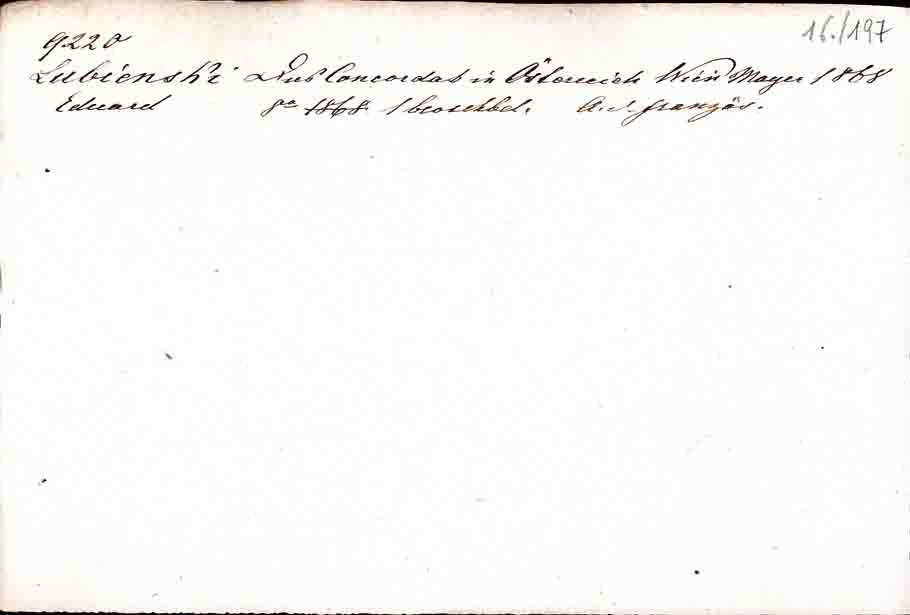 16./197
9220
Lubienski Das Concordat in Österreich Wien Mayer 1868
Eduard 8° 1868 1 broschbd. A. d. französ.